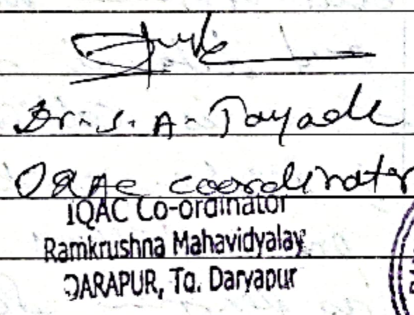 Dr. S. A. Tayade
IQAC coordinator
IQAC Co-ordinator
Ramkrushna Mahavidyalay
DARAPUR, Tq. Daryapur